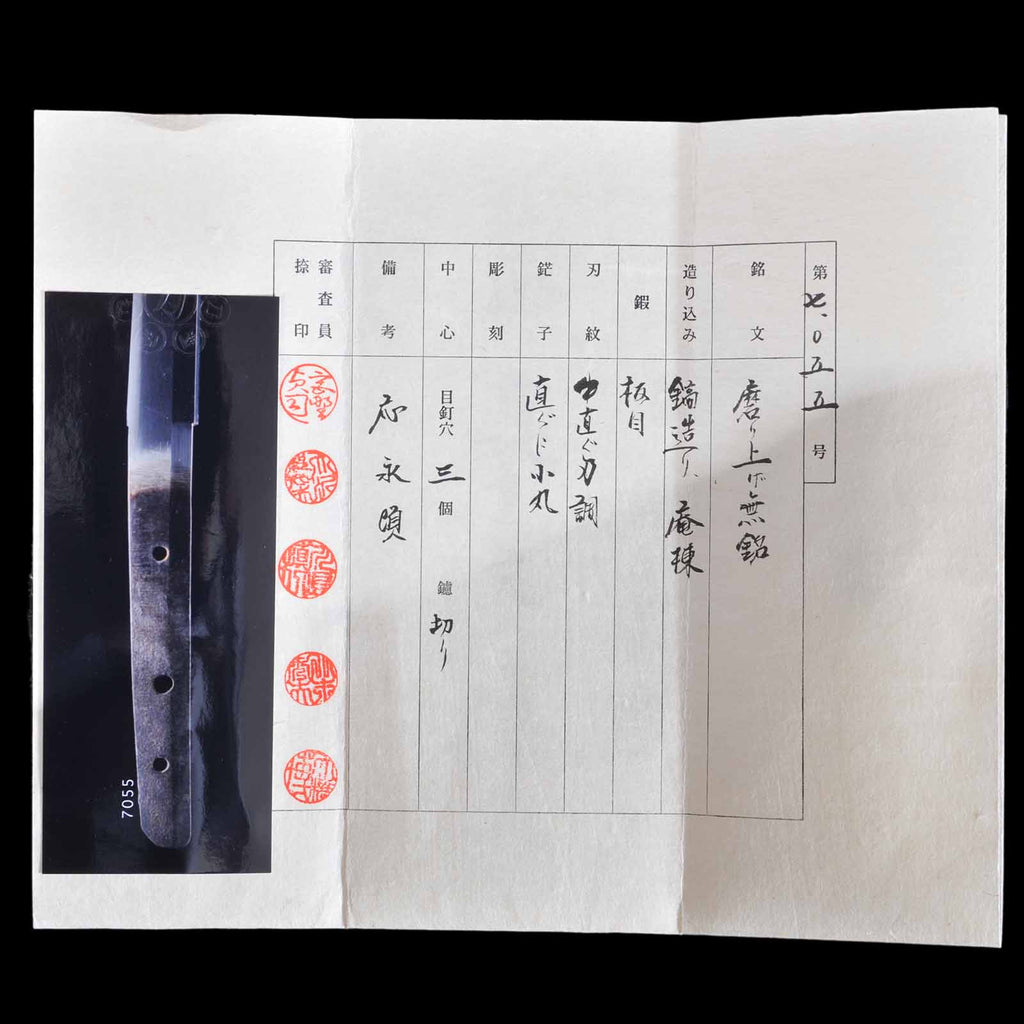 第七、〇五五号
銘文 磨り上げ無銘
造り込み 鎬造り、庵棟
鍜 板目
刃紋 中直ぐ刃調
鋩子 直ぐに小丸
彫刻
中心 目釘穴 三 個 鑢 切り
備考 応永頃
審査員
捺印
7055